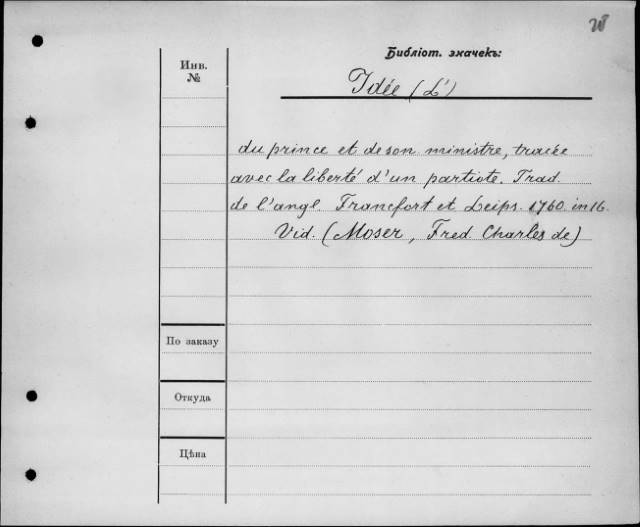 28
Библіот. значекъ:
Инв.
№
Idée (L')
du prince et de son ministre, tracée
avec la liberté d'un partiote. Trad.
de l'angl. Francfort et Leips. 1760. in 16.
Vid. (Moser, Fred. Charles de)
По заказу
Откуда
Цѣна